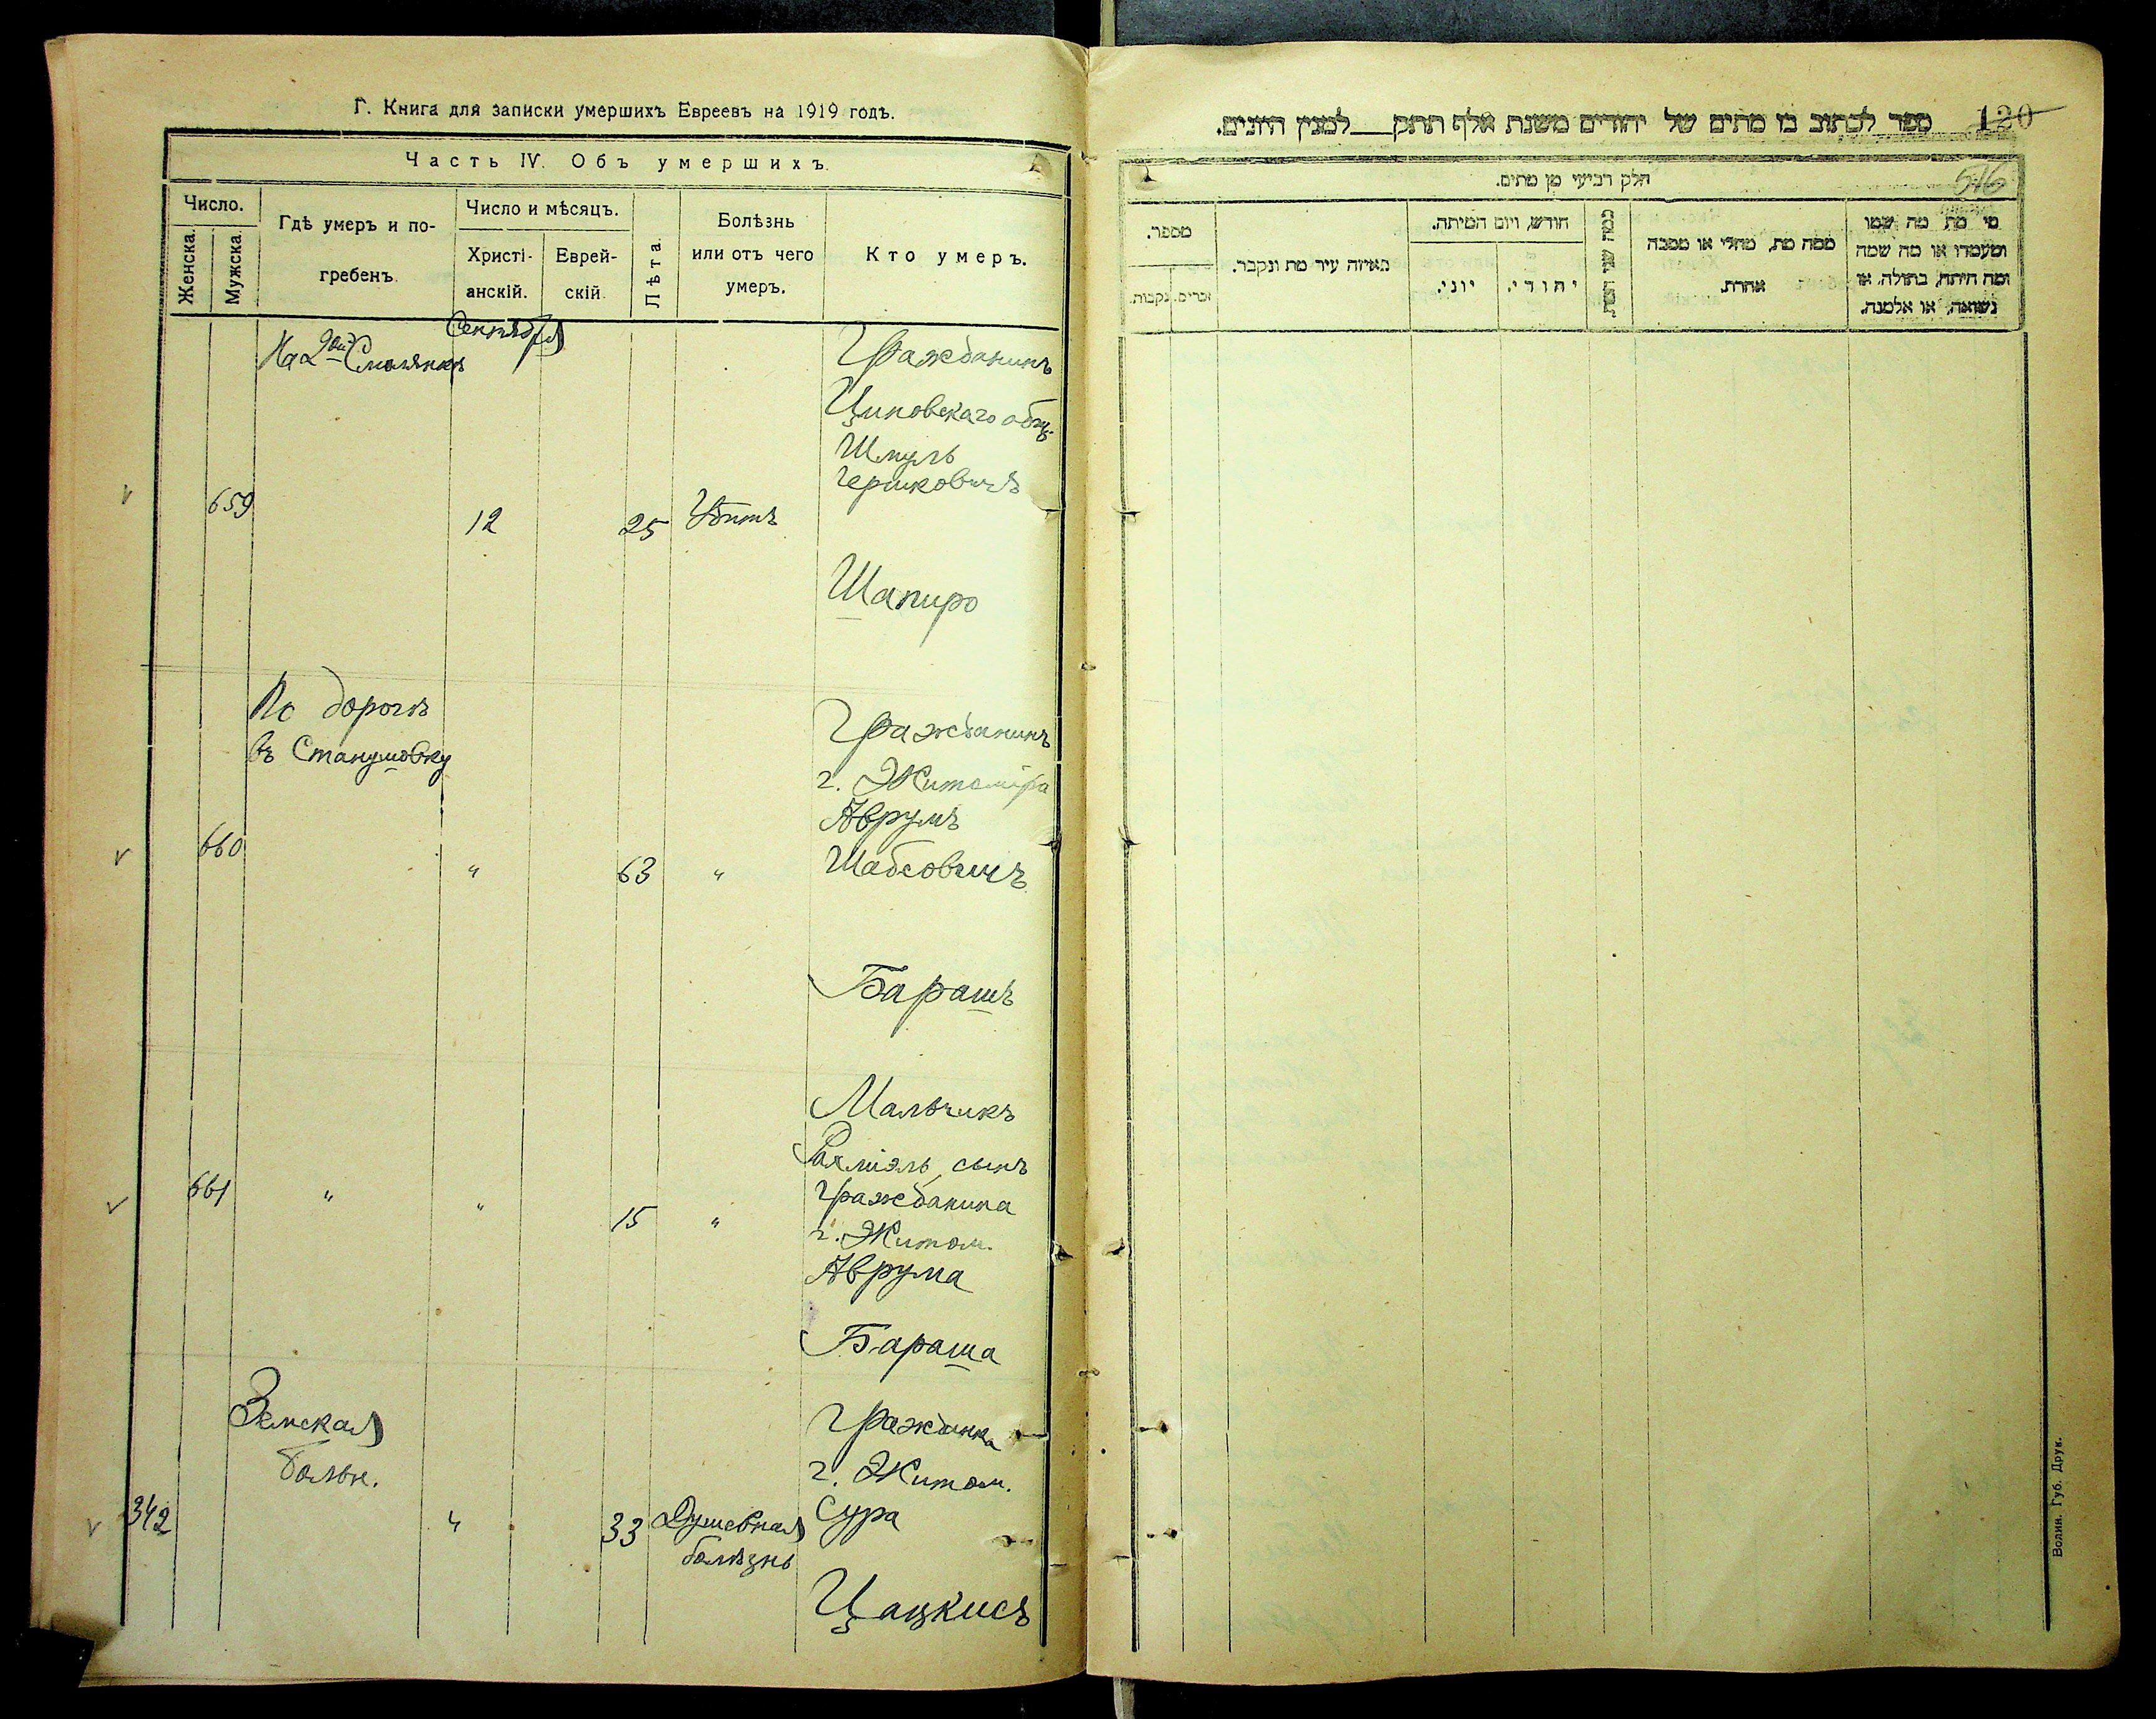 Г. Книга для записки умершихъ Евреевъ на 1919 годъ.
Часть IV. Объ умершихъ.
Число.
Женска.
Мужска.
Гдѣ умеръ и по-
гребенъ.
Число и мѣсяцъ.
Христі-
анскій.
Еврей-
скій.
Лѣта.
Болѣзнь
или отъ чего
умеръ.
Кто умеръ.
Сентября
На 2ой Смолянкѣ
659
12
25
Убитъ
Гражданинъ
Шмуль
Гершковичъ
Шапиро
По дорогѣ
въ Станушовку
660
"
63
"
Гражданинъ
г. Житоміра
Аврумъ
Шабсовичъ
Барашъ
661
"
"
15
"
Мальчикъ
сынъ
гражданина
г. Житом.
Аврума
Бараша
Земская
больн.
342
"
33
Душевная
болѣзнь
Гражданка
г. Житом.
Сура
Цацкисъ
130
ספר לכתוב בו מתים של יהודים משנת אלף תתק___למנין היונים.
516
חלק רביעי מן מתים.
מספר.
זכרים.
נקבות.
באיזה עיר מת ונקבר.
חודש, ויום המיתה.
יוני.
יהודי.
כמה שני המת.
ממה מת, מחלי או מסבה
אחרת.
מי מת מה שמו
ומעמדו או מה שמה
ומה היתה, בתולה, או
נשואה, או אלמנה.
Волин. Губ. Друк.